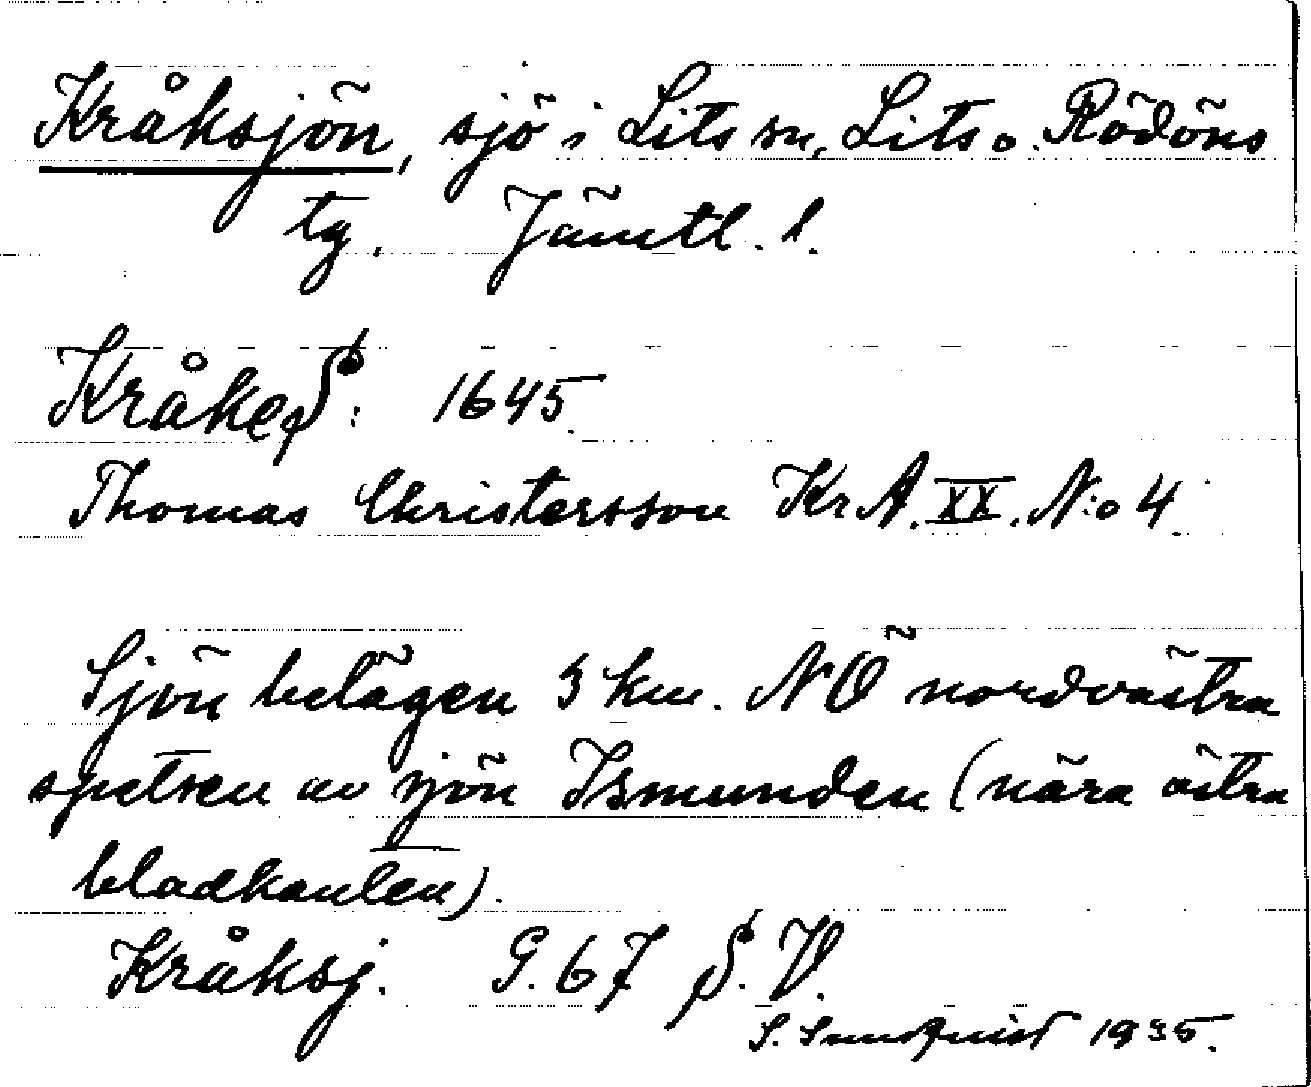 Kråksjön, sjö i Lits sn, Lits o. Rödöns
tg. Jämtl. l.
KråkeS: 1645
Thomas Christersson KrA. XX. N:o 4.
Sjön belägen 3 km. NÖ nordvästra
spetsen av sjön Ismunden (nära östra
bladkanten).
Kråksj. G. 67 S. V.
S. Sundquist 1935.